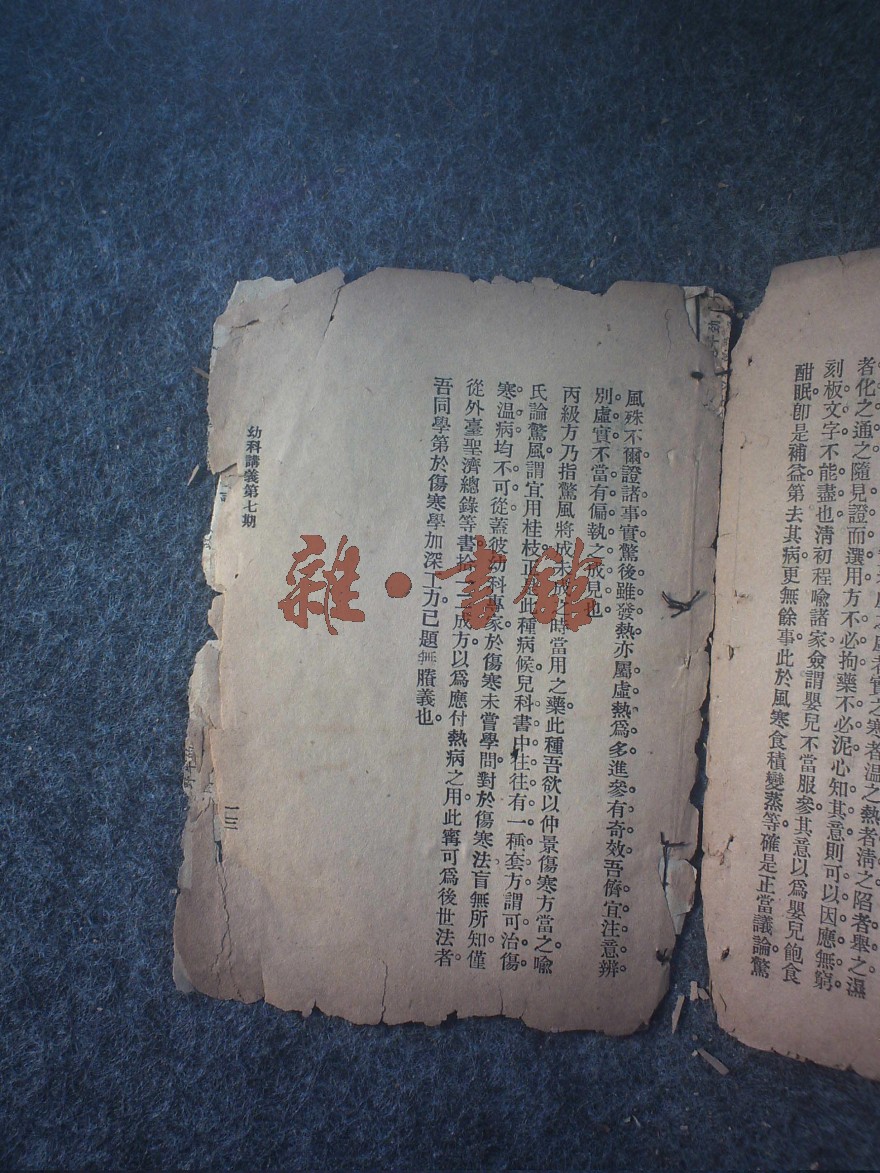 者化之通之隨見證而選用方不必拘藥不必泥心知其意則可以因應無窮。
刻板文字不能盡也清初程喻諸家僉謂嬰兒不當服參其意以爲嬰兒飽食
酣眠卽是補益第去其病更無餘事此於風寒食積變蒸等確是正當議論驚
風殊不爾證諸事實驚後雖發熱亦屬虛熱爲多進參有奇效吾儕宜注意辨
別虛實不當有偏執之成見也。
丙級方乃指驚風將成未成之時當用之藥此種吾欲以仲景傷寒方當之喻
氏論驚風謂宜用桂枝正此種病候兒科書中往往有一種套方謂可治傷
寒溫病均不可從蓋彼幼科專家於傷寒未嘗學問對於傷寒法盲無所知僅
從外臺聖濟總錄等書拾二三成方以爲應付熱病之用此寧可爲後世法者
吾同學第於傷寒學加深工力已題無賸義也。
幼科講義第七期
一三
雜·書館